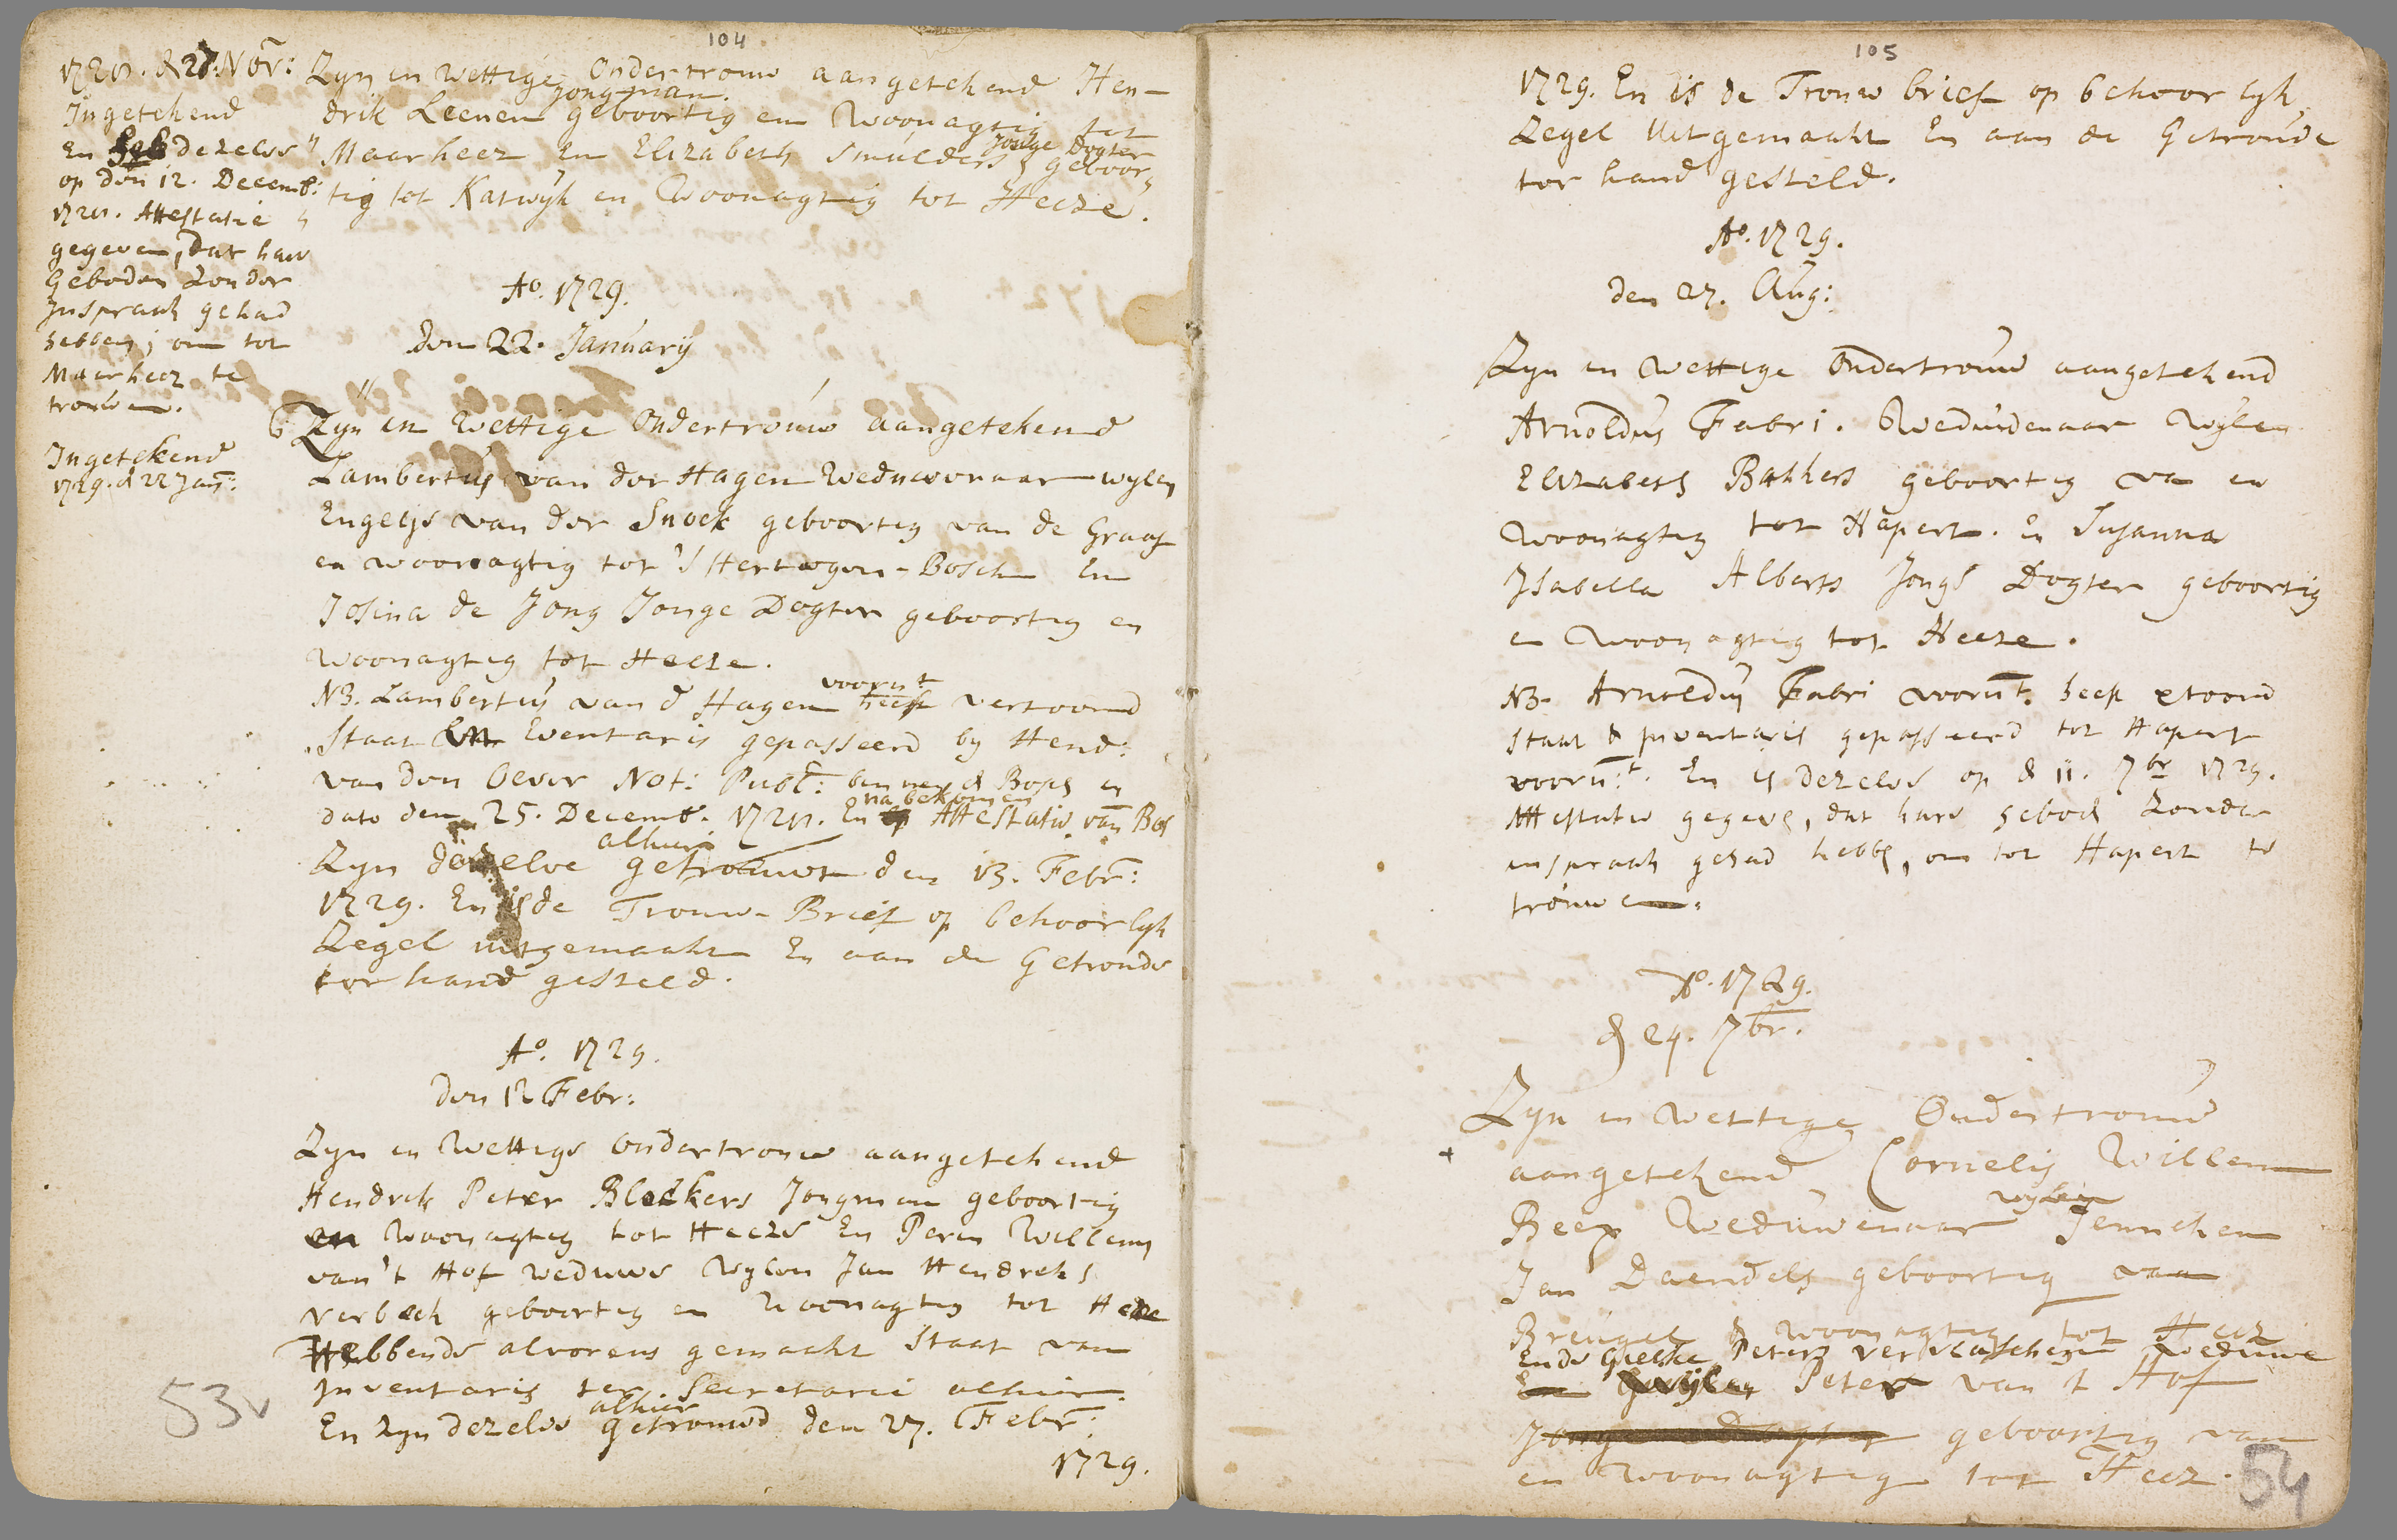 104
1728. d 28: Nov:
Ingetekend
En dezelve
op den 12. Decemb:
1728. Attestatie
gegeven, dat haer
Geboden Zonder
Inspraak gehad
hebben; om tot
Maarheez te
trouwen.
Zyn in wettige Ondertrouw aangetekend Hen-
jongman.
drik Leenen geboortig en Woonagtig tot
jonge Dogter
Maarheez En Elizabeth Smulders geboor-
tig tot Katwyk en Woonagtig tot Heeze.
Ao. 1729.
den 22. January
Ingetekend
1729. d 22 Jan:
Zyn in Wettige Ondertrouw aangetekend
Lambertus van der Hagen Weduwenaar wylen
Engeltje van der Snoek geboortig van de Graaf
en woonagtig tot 's Hertogen-Bosch En
Josina de Jong Jonge Dogter geboortig en
Woonagtig tot Heeze.
voornt
NB. Lambertus van d Hagen heeft vertoond
Staat En Eventaris gepasseerd by Hend:
van den Oever Not: Publ: binnen d Bosch in
na bekomen
dato den 25. Decemb. 1728. En Attestatie van Bos
alhier
Zyn dezelve getrouwt den 13. Febr:
1729. En is de Trouw-Brief op behoorlyk
Zegel uitgemaakt En aan de Getrouwde
ter hand gesteld.
Ao. 1729.
den 12 Febr:
Zyn in Wettige Ondertrouw aangetekend
Hendrik Peter Bleekers Jongman geboortig
en Woonagtig tot Heeze En Perin Willems
van 't Hof weduwe Wylen Jan Hendriks
Verbeek geboortig en Woonagtig tot Heeze
Hebbende alvorens gemaakt Staat van
Inventaris ter Secretarie alhier.
alhier
En zyn dezelve getrouwd den 27. Febr:
1729.
53v
105
1729. En is de Trouw brief op behoorlyk
Zegel Uitgemaakt En aan de Getrouwde
ter hand gesteld.
Ao. 1729.
den 27. Aug:
Zyn in Wettige Ondertrouw aangetekend
Arnoldus Fabri. Weduwenaar Wylen
Elizabeth Bakkers geboortig va en
Woonagtig tot Hapert. En Susanna
Isabella Alberts Jonge Dogter geboortig
en Woonagtig tot Heeze.
NB. Arnoldus Fabri voornt. heeft vtoond
Staat & Inventaris gepasseerd tot Hapert
voornt. En is dezelve op d 11. 7br 1729.
Attestatie gegeve, dat hare gebode Zonder
inspraak gehad hebbe, om tot Hapert te
trouwen.
Ao. 1729.
d 24. 7br.
Zyn in Wettige Ondertrouw
aangetekend Cornelis Willem
wylen
Beex Weduwenaar Jenneken
Jan Daendels geboortig van
Breugel & woonagtig tot Heez
Ende Gielke Peters Verdasschen weduwe
wylen Peter van 't Hof
Jonge Dogter geboortig van
en Woonagtig tot Heez.
54